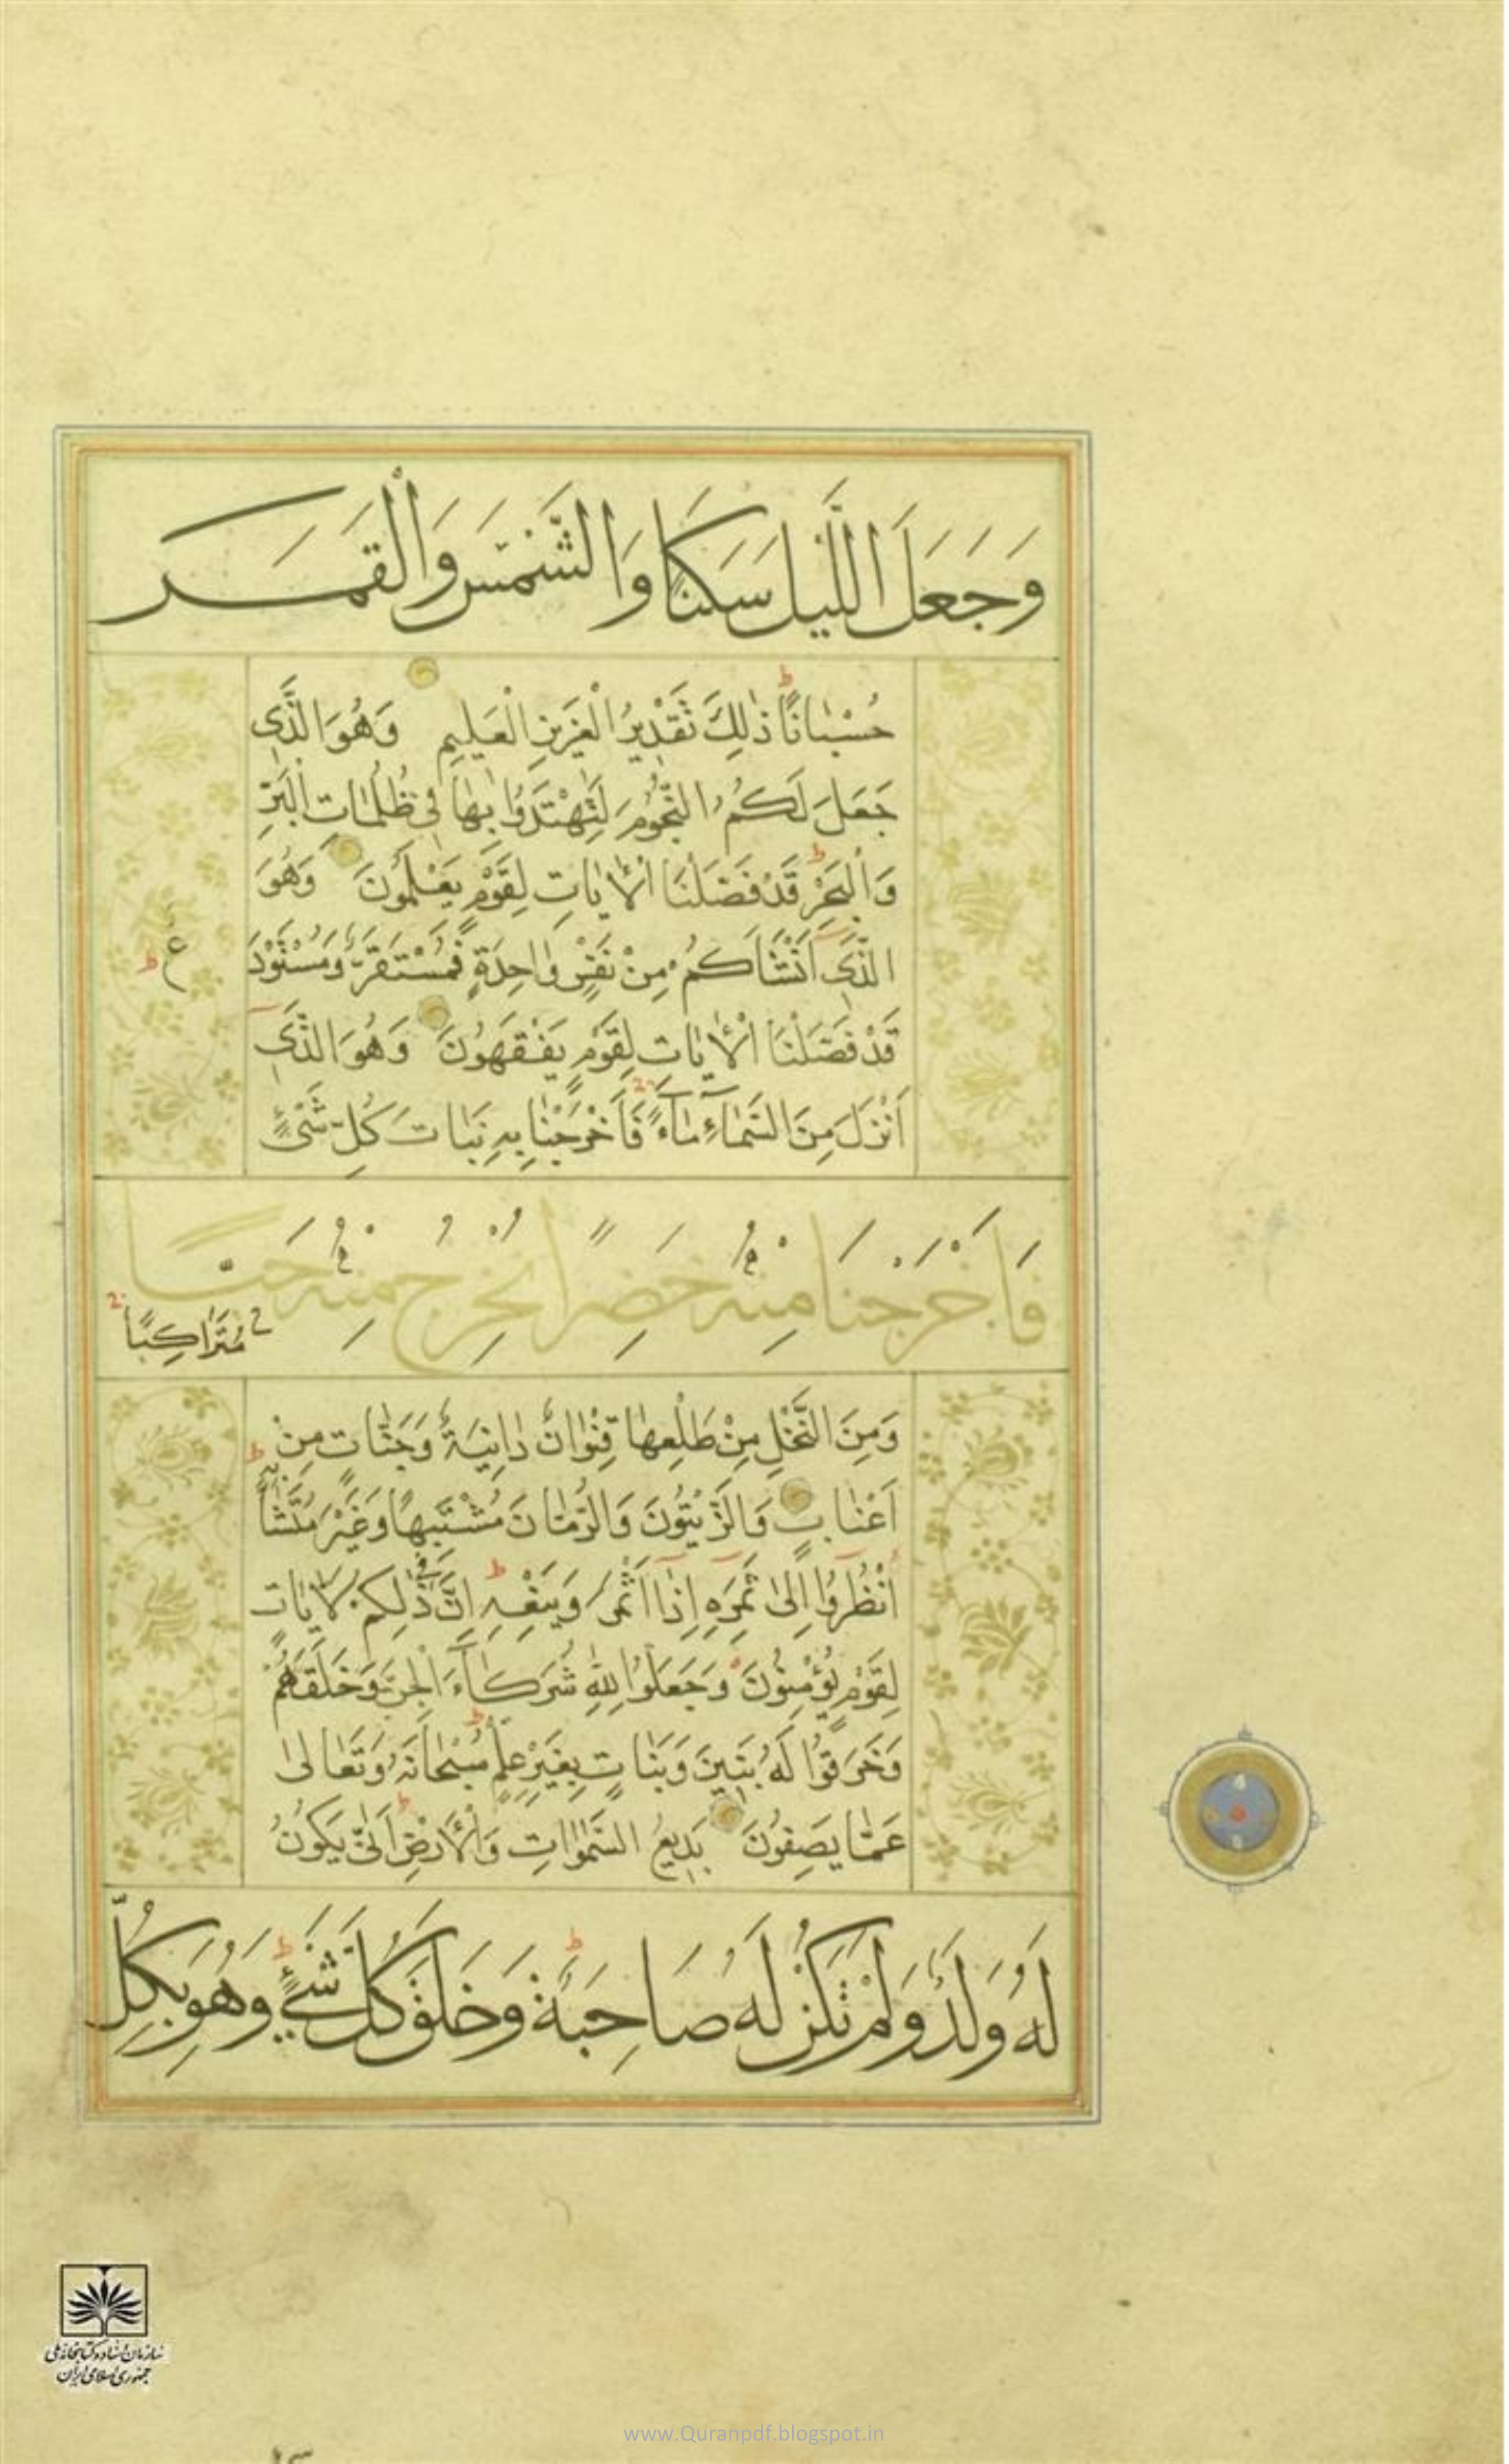 وَجَعَلَ اللَّيْلَ سَكَنًا وَالشَّمْسَ وَالْقَمَرَ
حُسْبَانًا ذٰلِكَ تَقْدِيرُ الْعَزِيزِ الْعَلِيمِ وَهُوَ الَّذِي
جَعَلَ لَكُمُ النُّجُومَ لِتَهْتَدُوا بِهَا فِي ظُلُمَاتِ الْبَرِّ
وَالْبَحْرِ قَدْ فَصَّلْنَا الْاٰيَاتِ لِقَوْمٍ يَعْلَمُونَ وَهُوَ
الَّذِي اَنْشَاَكُمْ مِنْ نَفْسٍ وَاحِدَةٍ فَمُسْتَقَرٌّ وَمُسْتَوْدَ
عٌ ط
قَدْ فَصَّلْنَا الْاٰيَاتِ لِقَوْمٍ يَفْقَهُونَ وَهُوَ الَّذِي
اَنْزَلَ مِنَ السَّمَاءِ مَاءً فَاَخْرَجْنَا بِهِ نَبَاتَ كُلِّ شَيْءٍ
فَاَخْرَجْنَا مِنْهُ خَضِرًا نُخْرِجُ مِنْهُ حَبًّا
مُتَرَاكِبًا
وَمِنَ النَّخْلِ مِنْ طَلْعِهَا قِنْوَانٌ دَانِيَةٌ وَجَنَّاتٍ مِنْ
اَعْنَابٍ وَالزَّيْتُونَ وَالرُّمَّانَ مُشْتَبِهًا وَغَيْرَ مُتَشَابِهٍ
اُنْظُرُوا اِلٰى ثَمَرِهِ اِذَا اَثْمَرَ وَيَنْعِهِ اِنَّ فِي ذٰلِكُمْ لَاٰيَاتٍ
لِقَوْمٍ يُؤْمِنُونَ وَجَعَلُوا لِلّٰهِ شُرَكَاءَ الْجِنَّ وَخَلَقَهُمْ
وَخَرَقُوا لَهُ بَنِينَ وَبَنَاتٍ بِغَيْرِ عِلْمٍ سُبْحَانَهُ وَتَعَالٰى
عَمَّا يَصِفُونَ بَدِيعُ السَّمٰوَاتِ وَالْاَرْضِ اَنّٰى يَكُونُ
لَهُ وَلَدٌ وَلَمْ تَكُنْ لَهُ صَاحِبَةٌ وَخَلَقَ كُلَّ شَيْءٍ وَهُوَ بِكُلِّ
سازمان اسناد و کتابخانه ملی
جمهوری اسلامی ایران
www.Quranpdf.blogspot.in